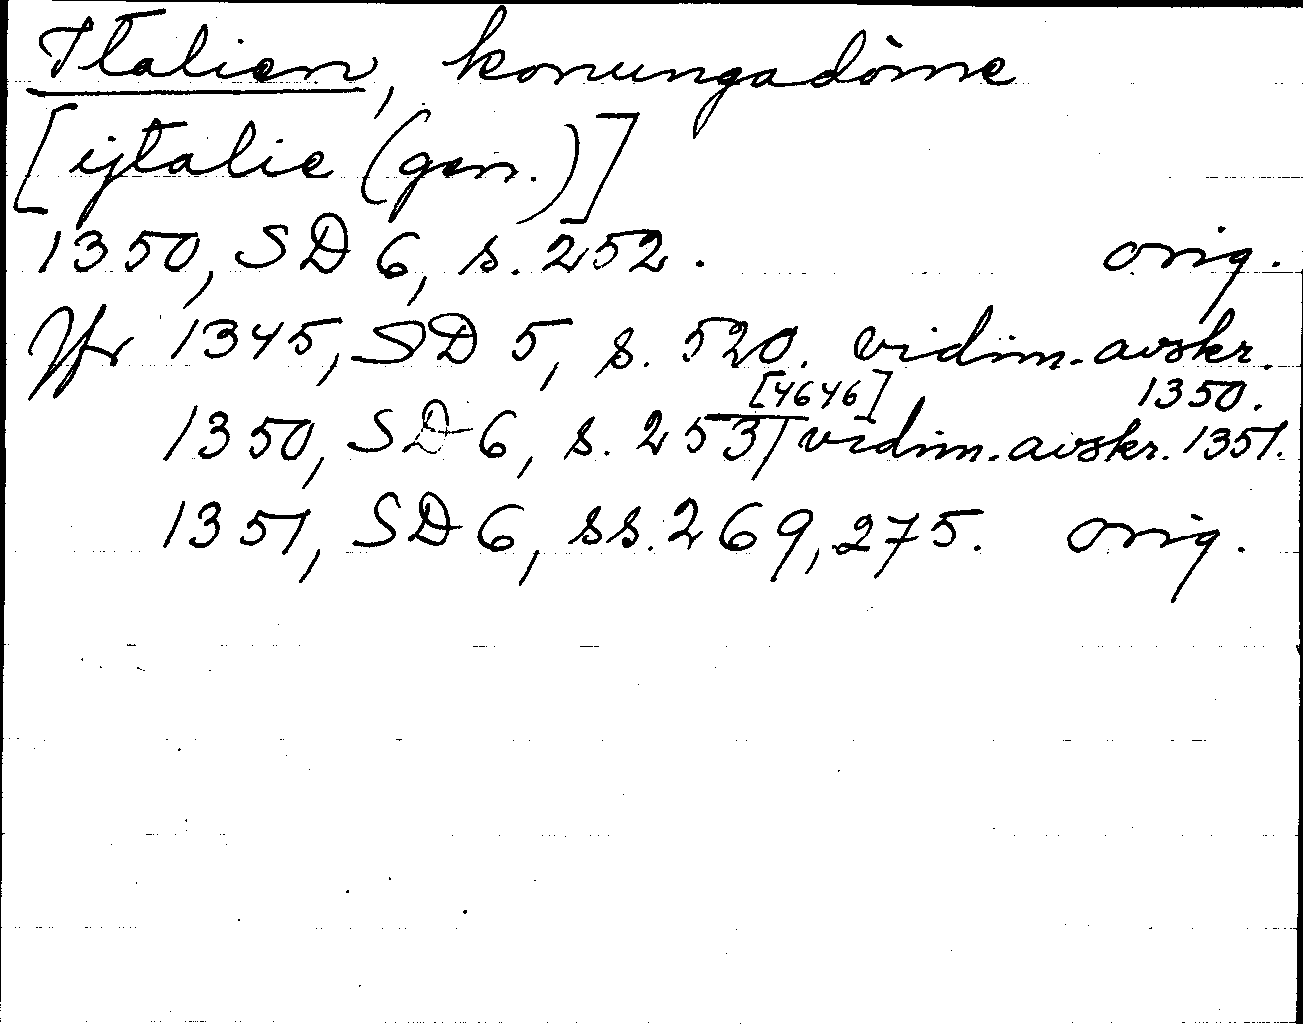 Italien, konungadöme
[ijtalie (gen.)]
1350, SD 6, s. 252. orig.
Jfr 1345, SD 5, s. 520. vidim. avskr. 1350.
1350, SD 6, s. 253 [4646] vidim. avskr. 1351.
1351, SD 6, ss. 269, 275. orig.